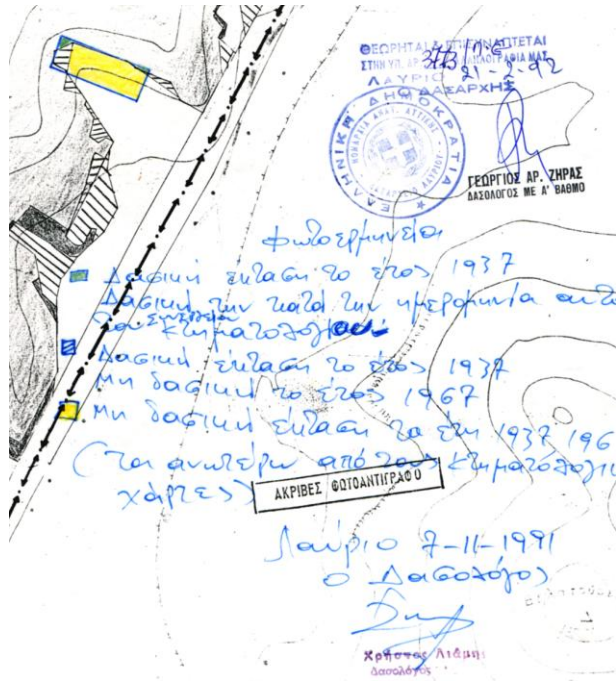 ΘΕΩΡΗΤΑΙ & ΕΠΙΣΥΝΑΠΤΕΤΑΙ
ΣΤΗΝ ΥΠ. ΑΡ. 3773 ΜΑΣ
ΛΑΥΡΙΟ 21-2-92
Ο ΔΑΣΑΡΧΗΣ
ΕΛΛΗΝΙΚΗ ΔΗΜΟΚΡΑΤΙΑ
ΝΟΜΑΡΧΙΑ ΑΝΑΤ. ΑΤΤΙΚΗΣ
ΔΑΣΑΡΧΕΙΟ ΛΑΥΡΙΟΥ
ΓΕΩΡΓΙΟΣ ΑΡ. ΖΗΡΑΣ
ΔΑΣΟΛΟΓΟΣ ΜΕ Α' ΒΑΘΜΟ
φωτοερμηνεία
Δασική έκταση το έτος 1937
Δασική την κατά την ημερομηνία
Κτηματολογίου
Δασική έκταση το έτος 1937
μη δασική το έτος 1967
μη δασική έκταση τα έτη 1937 196
(τα ανωτέρω από τους κτηματολογικ
χάρτες)
ΑΚΡΙΒΕΣ ΦΩΤΟΑΝΤΙΓΡΑΦΟ
Λαύριο 7-11-1991
Ο Δασολόγος
Χρήστος
Δασολόγος